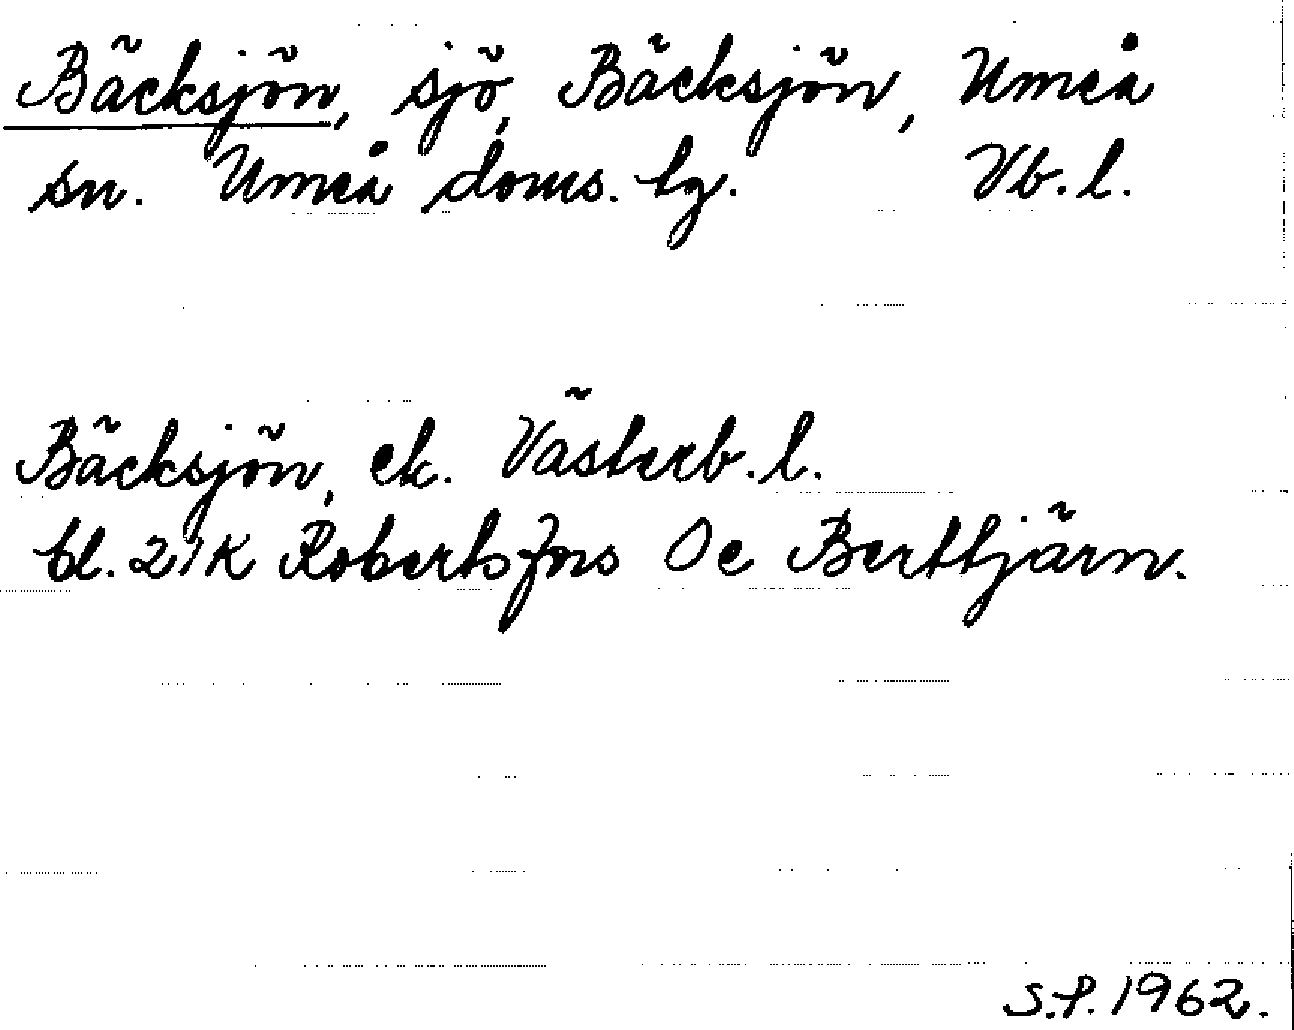 Bäcksjön, sjö, Bäcksjön, Umeå
sn. Umeå doms. lg. Vb. l.
Bäcksjön, ek. Västerb. l.
bl. 21K Robertsfors Oe Berttjärn.
S.P. 1962.